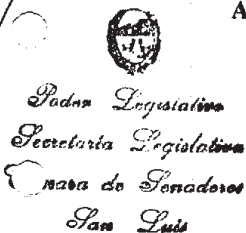 A
Poder Legislativo
Secretaría Legislativa
Cámara de Senadores
San Luis